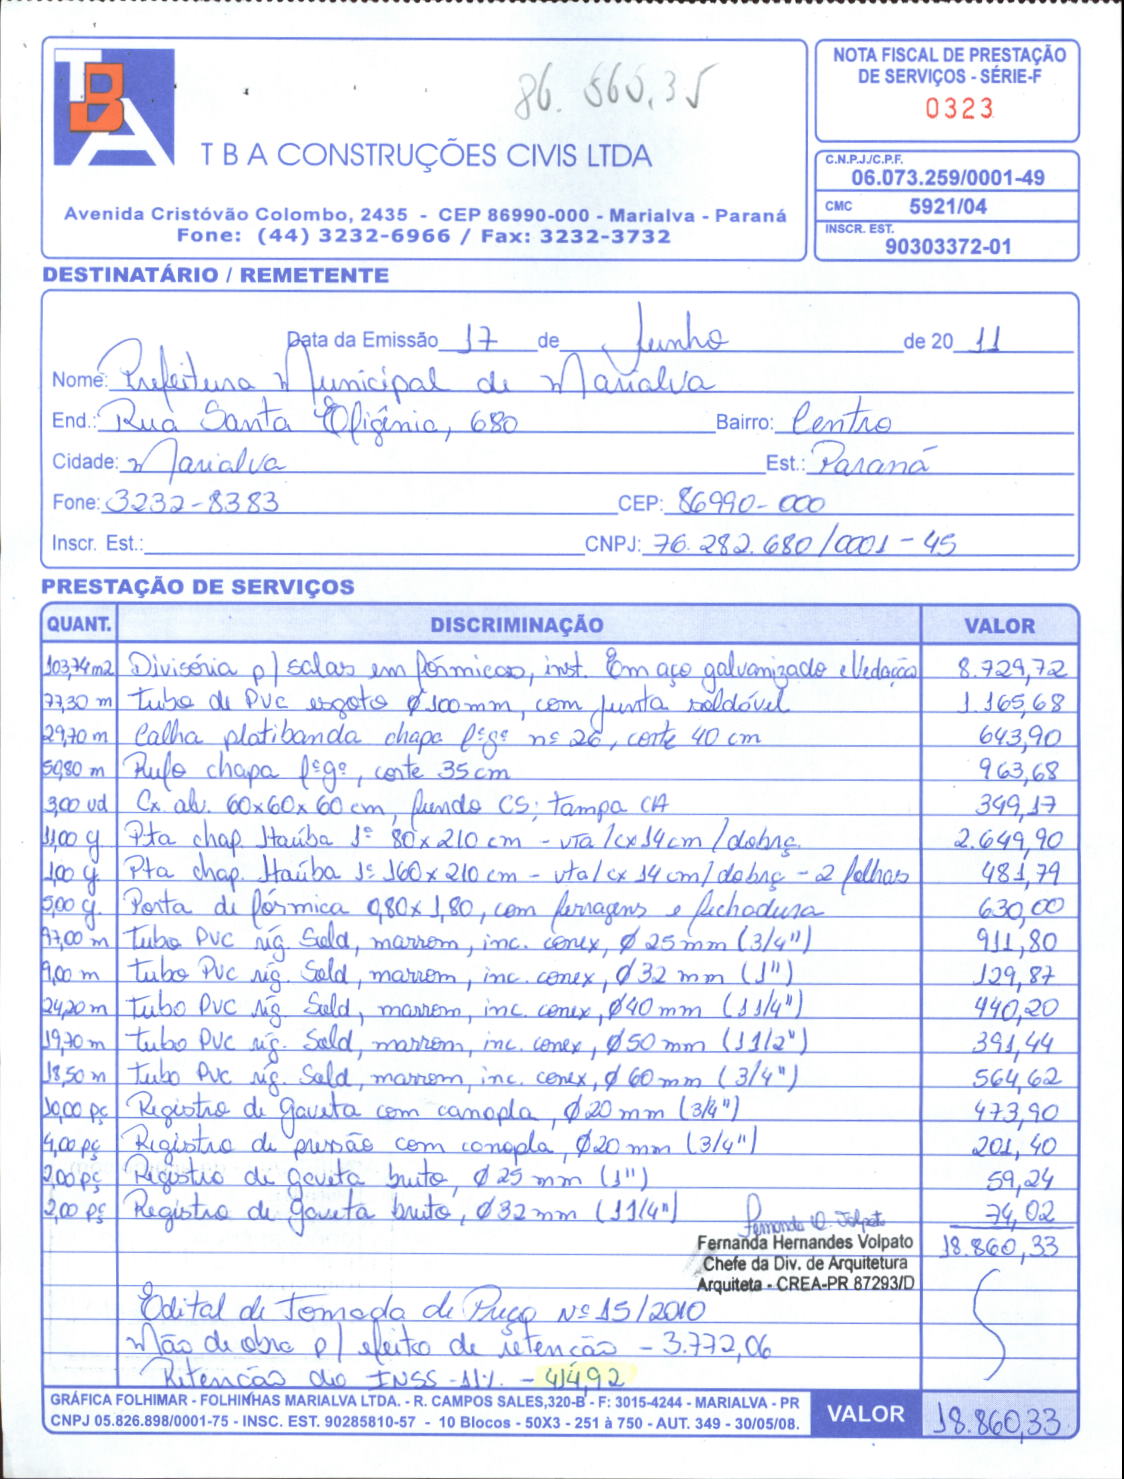 86.560,35
TBA
T B A CONSTRUÇÕES CIVIS LTDA
Avenida Cristóvão Colombo, 2435 - CEP 86990-000 - Marialva - Paraná
Fone: (44) 3232-6966 / Fax: 3232-3732
NOTA FISCAL DE PRESTAÇÃO
DE SERVIÇOS - SÉRIE-F
0323
C.N.P.J./C.P.F.
06.073.259/0001-49
CMC 5921/04
INSCR. EST.
90303372-01
DESTINATÁRIO / REMETENTE
Data da Emissão 17 de Junho de 20 11
Nome: Prefeitura Municipal de Marialva
End.: Rua Santa Efigênia, 680 Bairro: Centro
Cidade: Marialva Est.: Paraná
Fone: 3232-8383 CEP: 86990-000
Inscr. Est.: CNPJ: 76.282.680/0001-45
PRESTAÇÃO DE SERVIÇOS
QUANT. DISCRIMINAÇÃO VALOR
103,74m2 Divisória p/ salas em fórmicas, inst. Em aço galvanizado e Vedação 8.729,72
77,30 m tubo de PVC esgoto Ø 100mm, com junta soldável 1.165,68
29,70 m Calha platibanda chapa fºgº nº 26, corte 40 cm 643,90
50,80 m Rufo chapa fºgº, corte 35cm 963,68
3,00 ud Cx. alv. 60x60x60 cm, fundo CS; tampa CA 349,17
11,00 cj Pta chap. Itaúba 1º 80x210 cm - vta/cx14cm/dobrç 2.649,90
1,00 cj Pta chap. Itaúba 1º 160x210 cm - vta/cx 14 cm/dobrç - 2 folhas 481,79
5,00 cj. Porta de fórmica 0,80x1,80, com ferragens e fechadura 630,00
97,00 m tubo PVC ríg. Sold, marrom, inc. conex, Ø 25mm (3/4") 911,80
9,00 m tubo PVC ríg. Sold, marrom, inc. conex, Ø32 mm (1") 129,87
24,20 m tubo PVC ríg. Sold, marrom, inc. conex, Ø40 mm (1 1/4") 440,20
19,70 m tubo PVC ríg. Sold, marrom, inc. conex, Ø50 mm (1 1/2") 391,44
18,50 m tubo PVC ríg. Sold, marrom, inc. conex, Ø 60mm (3/4") 564,62
10,00 pç Registro de gaveta com canopla, Ø20mm (3/4") 473,90
4,00 pç Registro de pressão com canopla, Ø20 mm (3/4") 201,40
2,00 pç Registro de gaveta bruto, Ø 25 mm (1") 59,24
2,00 pç Registro de gaveta bruto, Ø32mm (1 1/4") 74,02
Fernanda H. Volpato
Fernanda Hernandes Volpato 18.860,33
Chefe da Div. de Arquitetura
Arquiteta - CREA-PR 87293/D
Edital de Tomada de Preço Nº 15/2010
Mão de obra p/ efeito de retenção - 3.772,06
Retenção do INSS -11% - 414,92
GRÁFICA FOLHIMAR - FOLHINHAS MARIALVA LTDA. - R. CAMPOS SALES,320-B - F: 3015-4244 - MARIALVA - PR
CNPJ 05.826.898/0001-75 - INSC. EST. 90285810-57 - 10 Blocos - 50X3 - 251 à 750 - AUT. 349 - 30/05/08.
VALOR 18.860,33